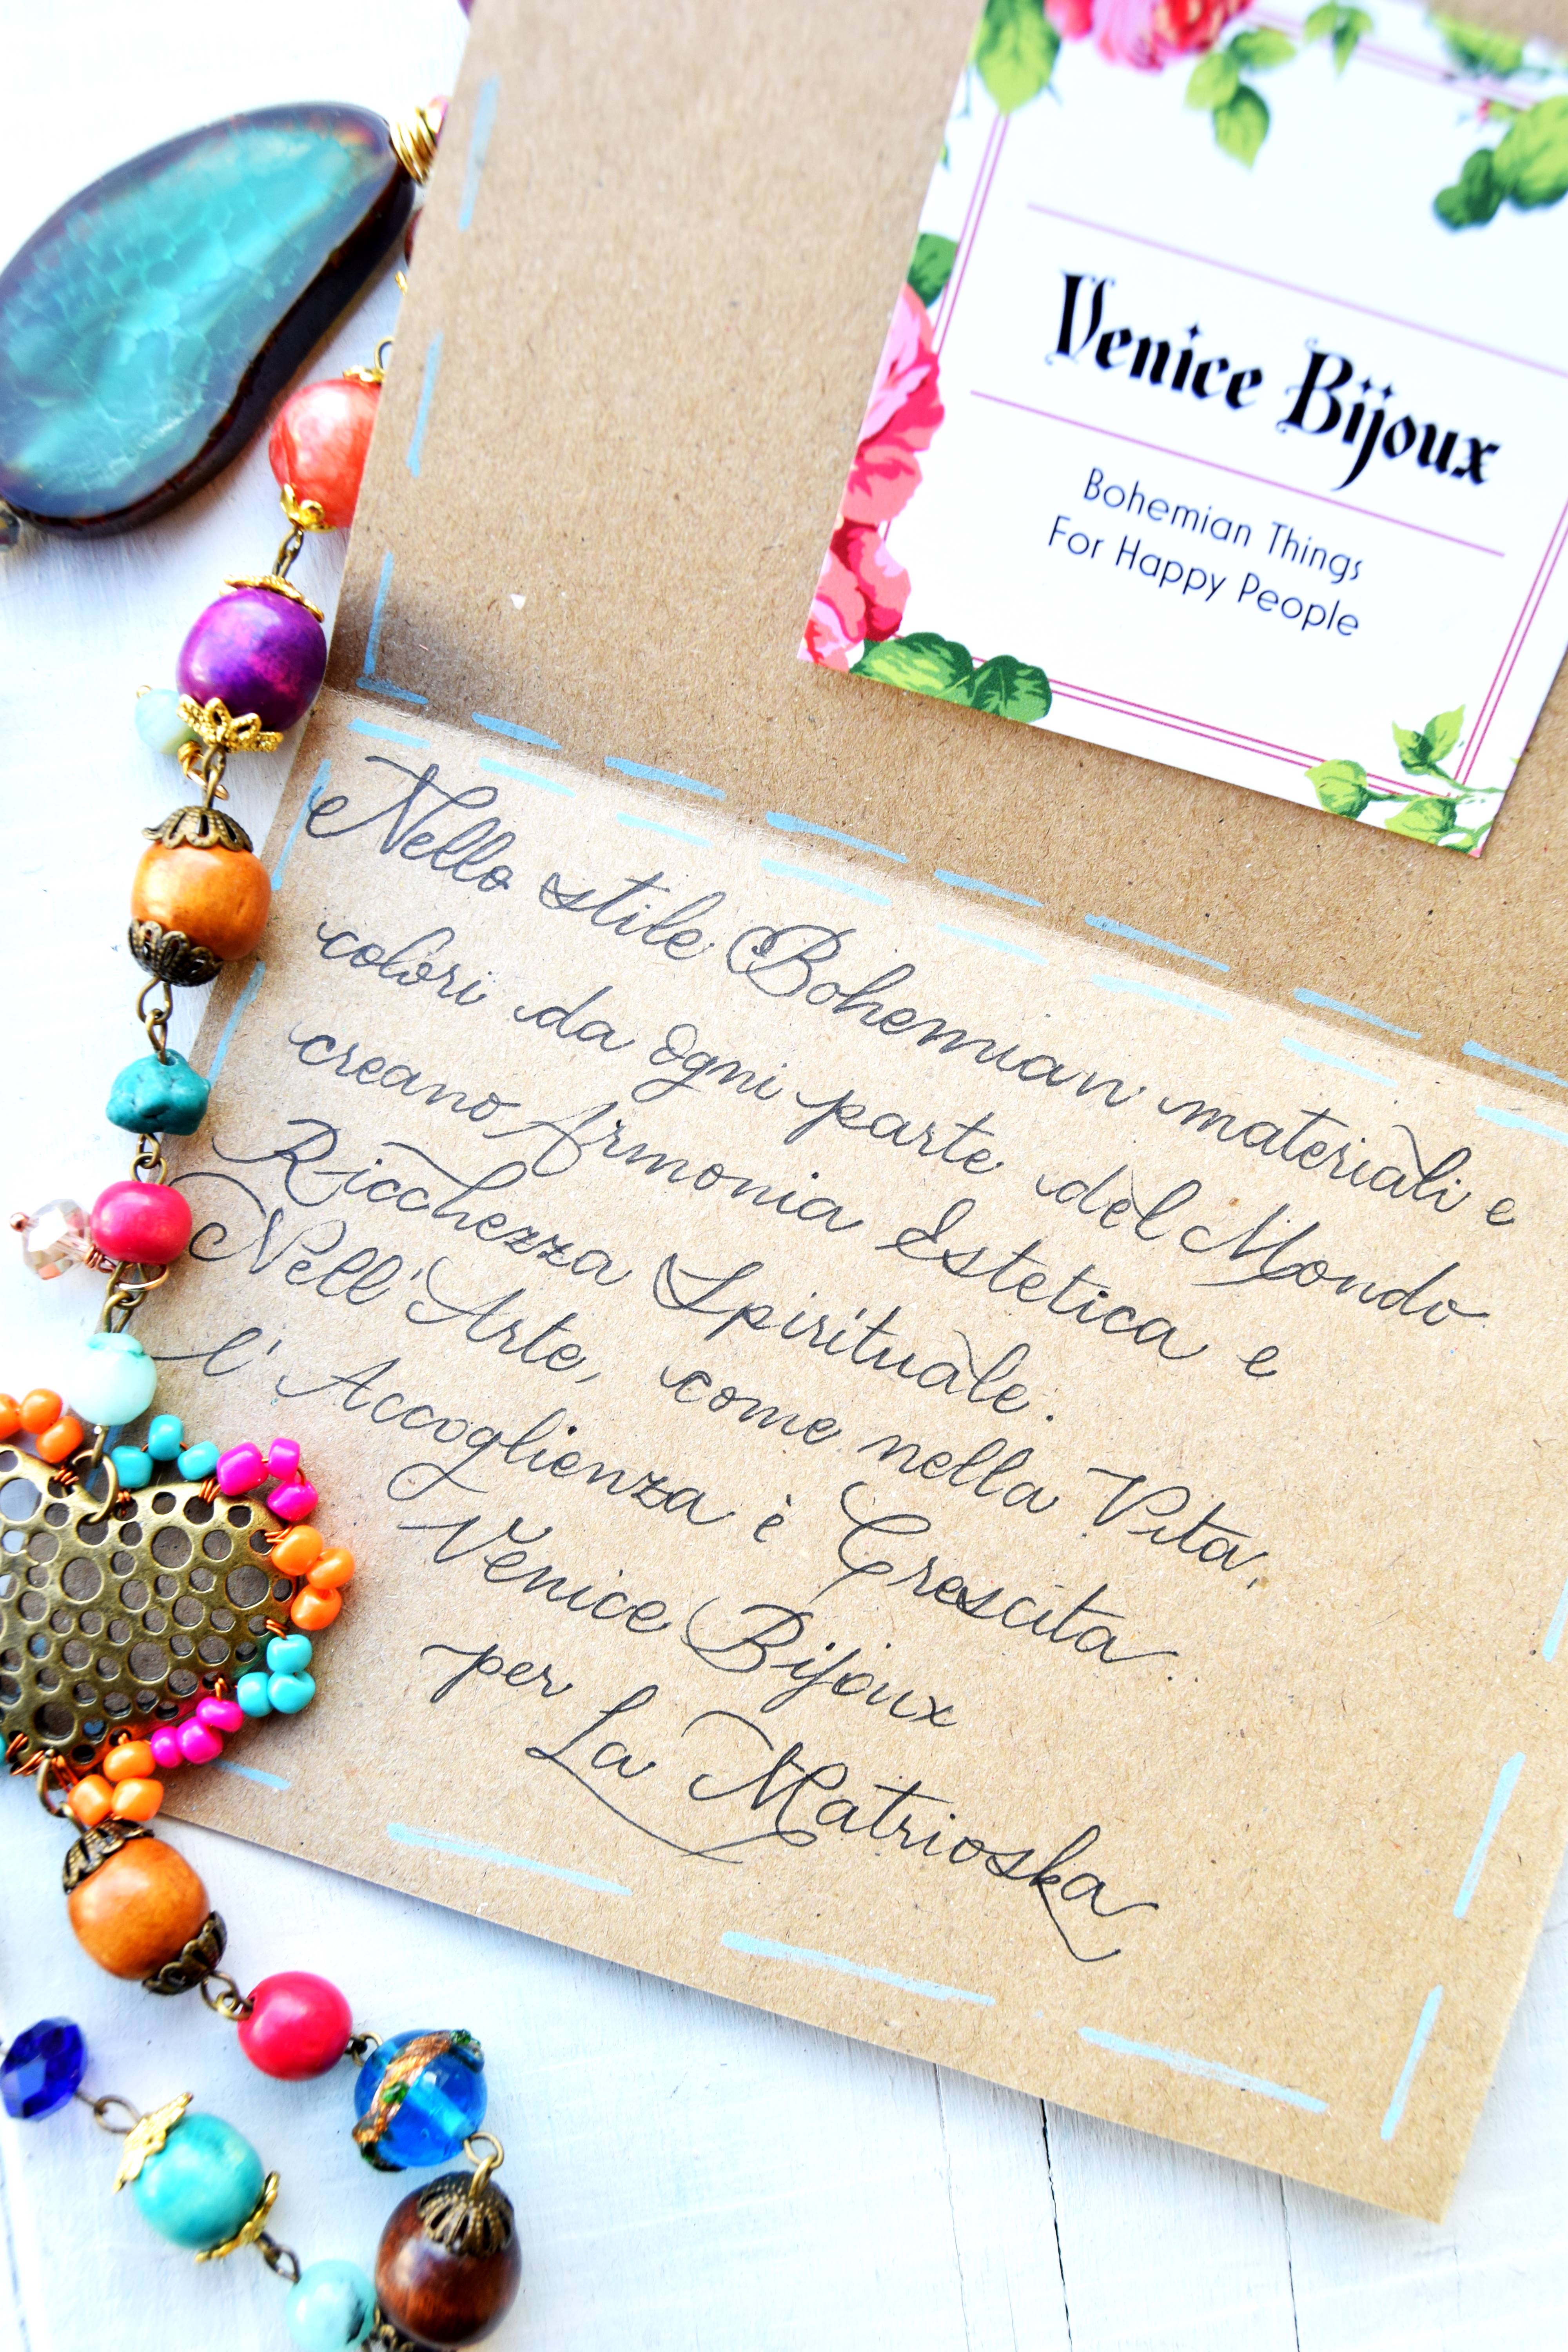 Venice Bijoux
Bohemian Things
For Happy People
Nello stile Bohemian materiali e
colori da ogni parte del Mondo
creano Armonia Estetica e
Ricchezza Spirituale.
Nell'Arte, come nella Vita,
l'Accoglienza è Crescita.
Venice Bijoux
per
La Matrioska